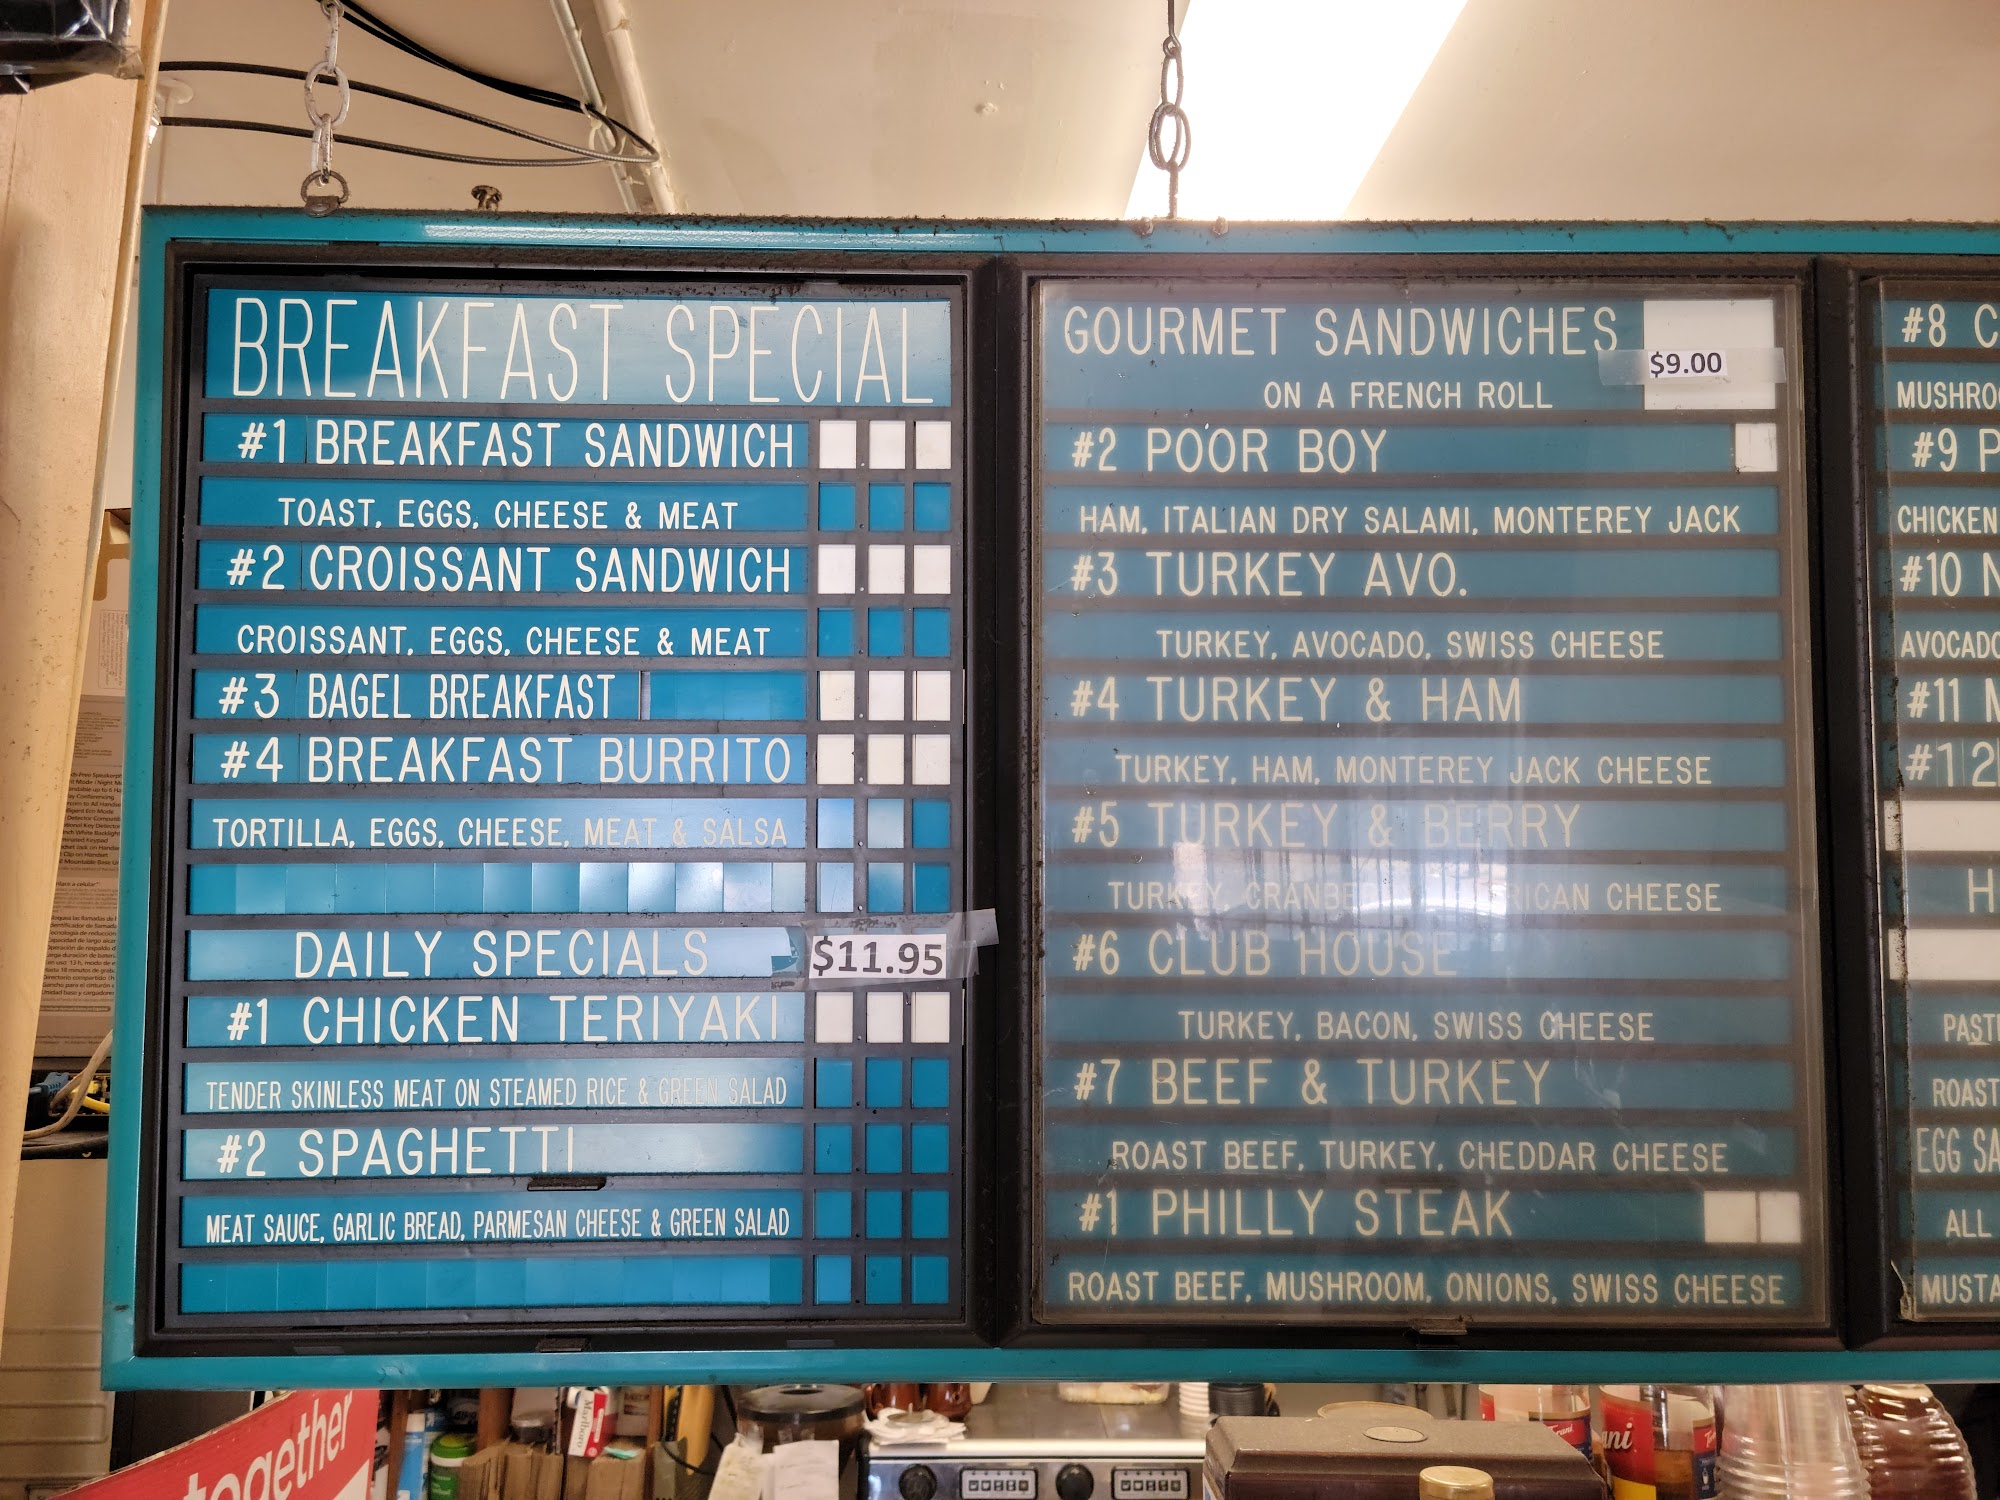 BREAKFAST SPECIAL
#1 BREAKFAST SANDWICH
TOAST, EGGS, CHEESE & MEAT
#2 CROISSANT SANDWICH
CROISSANT, EGGS, CHEESE & MEAT
#3 BAGEL BREAKFAST
#4 BREAKFAST BURRITO
TORTILLA, EGGS, CHEESE, MEAT & SALSA
DAILY SPECIALS $11.95
#1 CHICKEN TERIYAKI
TENDER SKINLESS MEAT ON STEAMED RICE & GREEN SALAD
#2 SPAGHETTI
MEAT SAUCE, GARLIC BREAD, PARMESAN CHEESE & GREEN SALAD
GOURMET SANDWICHES $9.00
ON A FRENCH ROLL
#2 POOR BOY
HAM, ITALIAN DRY SALAMI, MONTEREY JACK
#3 TURKEY AVO.
TURKEY, AVOCADO, SWISS CHEESE
#4 TURKEY & HAM
TURKEY, HAM, MONTEREY JACK CHEESE
#5 TURKEY & BERRY
TURKEY, CHEESE
#6 CLUB HOUSE
TURKEY, BACON, SWISS CHEESE
#7 BEEF & TURKEY
ROAST BEEF, TURKEY, CHEDDAR CHEESE
#1 PHILLY STEAK
ROAST BEEF, MUSHROOM, ONIONS, SWISS CHEESE
#8
#9
CHICKEN
#10
#11
#12
ROAST
EGG
ALL
together
Marlboro